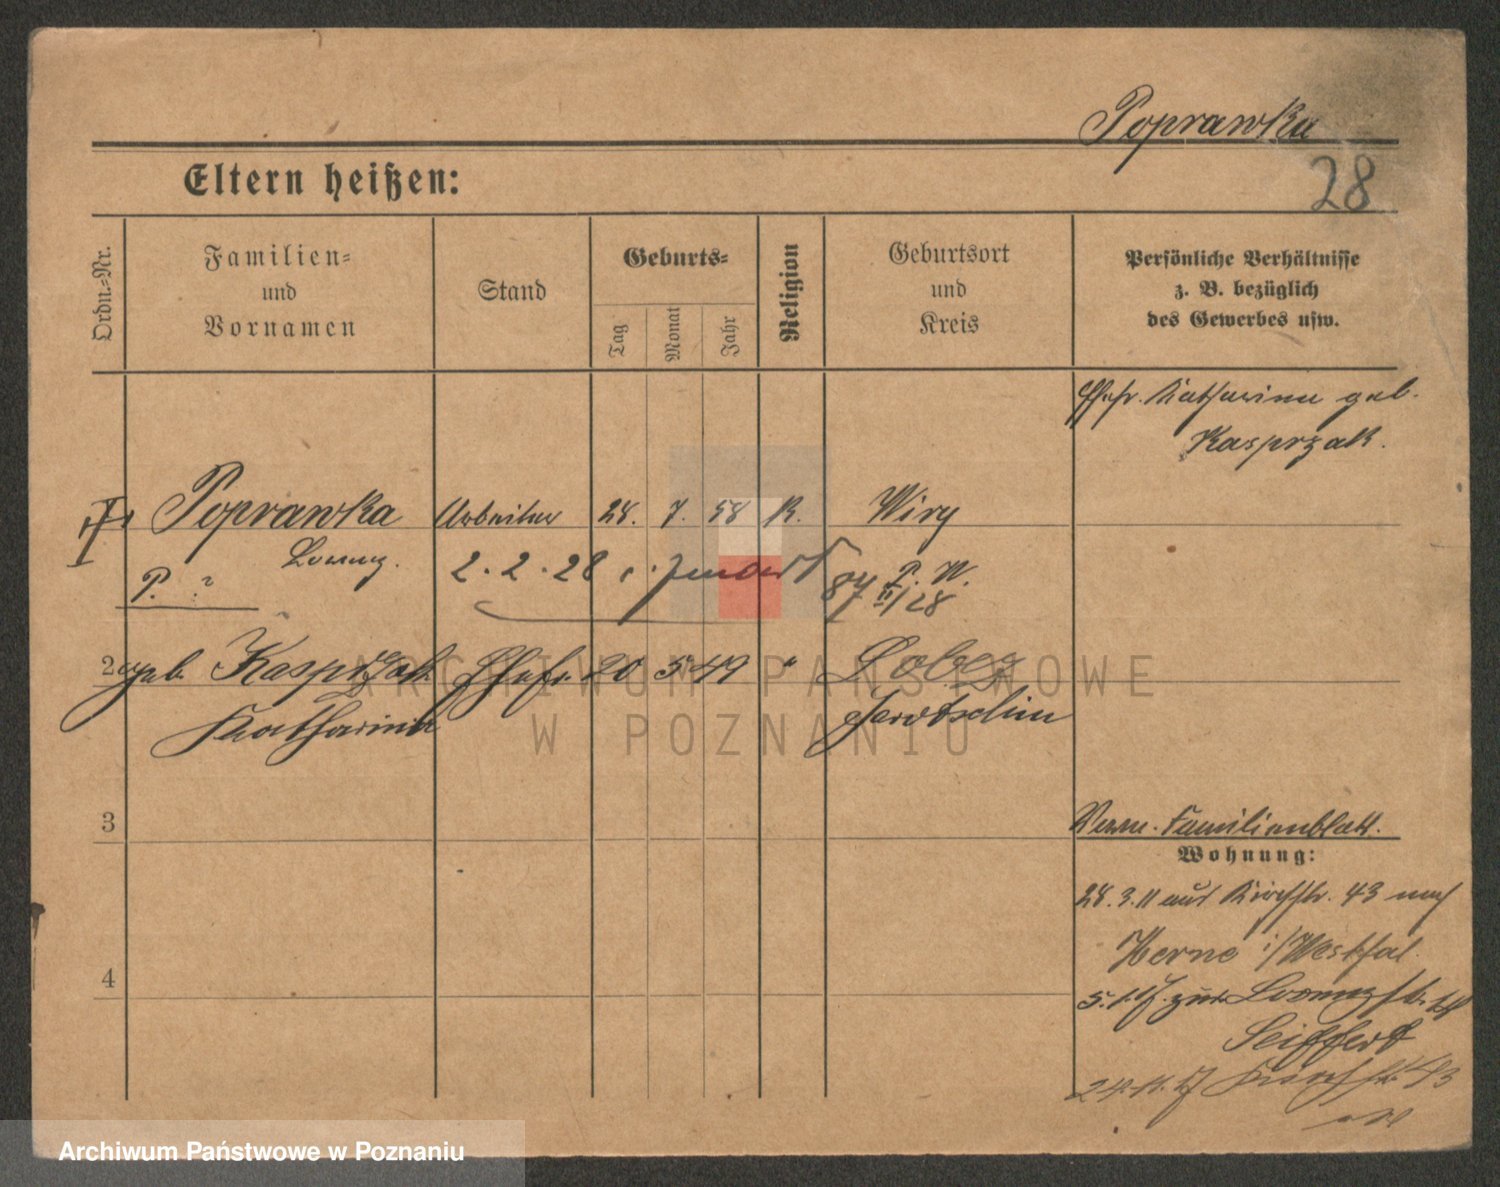 Poprawka
28
Eltern heißen:
Ordn.-Nr.
Familien-
und
Vornamen
Stand
Geburts-
Tag
Monat
Jahr
Religion
Geburtsort
und
Kreis
Persönliche Verhältnisse
z. B. bezüglich
des Gewerbes usw.
Ehefr. Katharina geb.
Kasprzak.
Poprawka Arbeiter 28. 7. 58 K. Wiry
Lorenz.
P. ? 2.2.28
P. W.
87 II/28
2 geb. Kasprzak Ehefr. 20 5 49 "
Katharina Jarotschin
3
Verm. Familienblatt.
Wohnung:
28.3.11 aus Kirchstr. 43 nach
Herne i/Westfal.
4
5.1.17. zur Lorenzstr.
Seiffert
24.11.17 Kirchstr. 43
ARCHIWUM PAŃSTWOWE
W POZNANIU
Archiwum Państwowe w Poznaniu